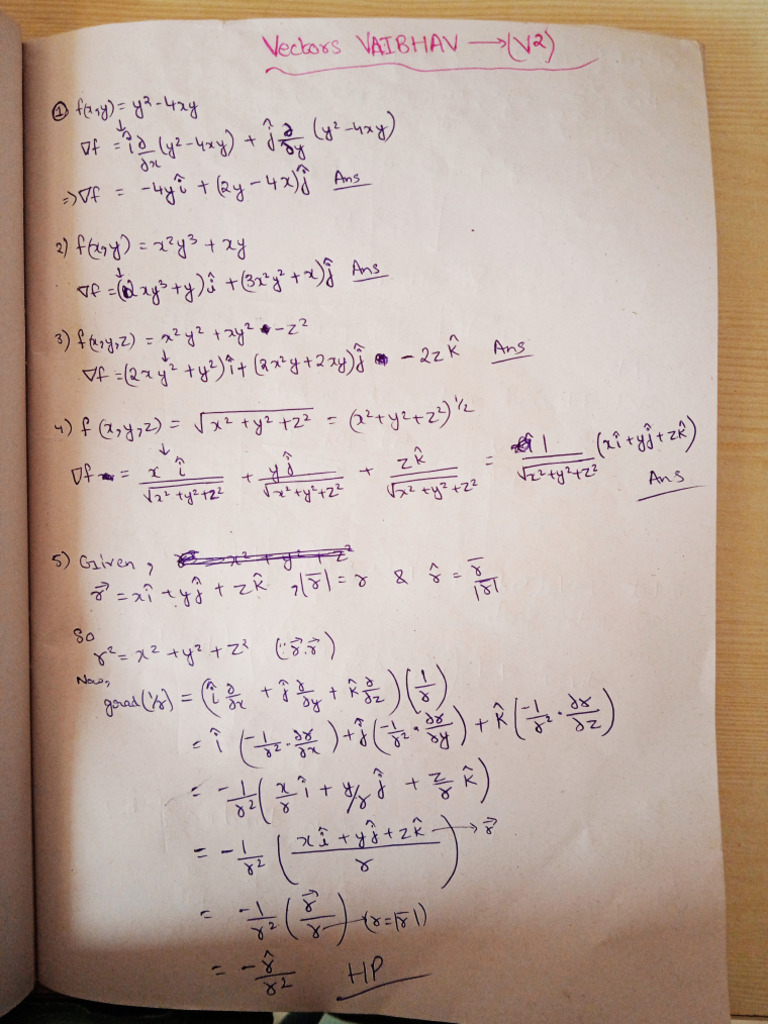 Vectors VAIBHAV → (V2)
① f(x,y) = y² - 4xy
∇f = î ∂/∂x (y² - 4xy) + ĵ ∂/∂y (y² - 4xy)
⇒ ∇f = -4y î + (2y - 4x) ĵ Ans
2) f(x,y) = x²y³ + xy
∇f = (2xy³ + y) î + (3x²y² + x) ĵ Ans
3) f(x,y,z) = x²y² + xy² - z²
∇f = (2xy² + y²) î + (2x²y + 2xy) ĵ - 2z k̂ Ans
4) f(x,y,z) = √(x² + y² + z²) = (x² + y² + z²)^1/2
∇f = x î/√(x² + y² + z²) + y ĵ/√(x² + y² + z²) + z k̂/√(x² + y² + z²) = 1/√(x² + y² + z²) (x î + y ĵ + z k̂)
Ans
5) Given,
r⃗ = x î + y ĵ + z k̂ , |r̅| = r & r̂ = r̅/|r̅|
So
r² = x² + y² + z² (∵ r⃗.r⃗)
Now,
grad(1/r) = (î ∂/∂x + ĵ ∂/∂y + k̂ ∂/∂z) (1/r)
= î (-1/r² · ∂r/∂x) + ĵ (-1/r² · ∂r/∂y) + k̂ (-1/r² · ∂r/∂z)
= -1/r² (x/r î + y/r ĵ + z/r k̂)
= -1/r² ((x î + y ĵ + z k̂)/r) → r⃗
= -1/r² (r⃗/r) → (r = |r̅|)
= -r̂/r² HP